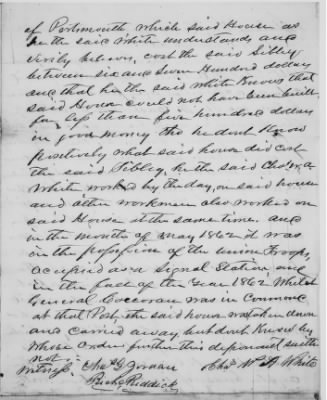 of Portsmouth which said House as
he the said White understands and
verily believes, cost the said Sibley
between six and Seven Hundred dollars
and that he the said White Knows that
said House could not have been built
for less than five hundred dollars
in good money tho he dont Know
positively what said house did cost
the said Sibley, he the said Chs W A
White worked by the day, on said house
and other workmen also worked on
said House at the same time. and
in the month of May 1862 it was
in the possession of the union troops,
occupied as a Signal Station and
in the fall of the Year 1862 Whilst
General Corcoran was in Command
at that Post, the said house was taken down
and carried away but dont Know by
whose order further this deponent saith
not.
Witness. Chas G
Riddick Chs W A White